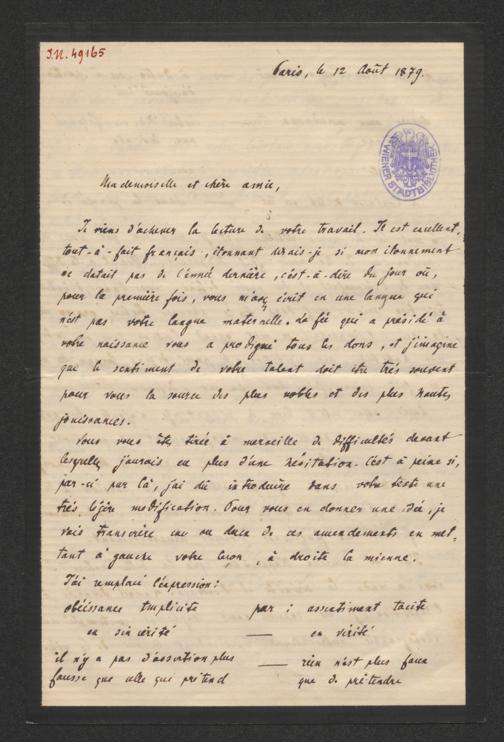 J.N. 49165
Paris, le 12 Août 1879.
WIENER STADTBIBLIOTHEK
Mademoiselle et chère amie,
Je viens d'achever la lecture de votre travail. Il est excellent,
tout-à-fait français, étonnant dirais-je si mon étonnement
ne datait pas de l'année dernière, c'est-à-dire du jour où,
pour la première fois, vous m'avez écrit en une langue qui
n'est pas votre langue maternelle. La fée qui a présidé à
votre naissance vous a prodigué tous les dons, et j'imagine
que le sentiment de votre talent doit être très souvent
pour vous la source des plus nobles et des plus hautes
jouissances.
Vous vous êtes tirée à merveille de difficultés devant
lesquelles j'aurais eu plus d'une hésitation. C'est à peine si,
par-ci par là, j'ai dû introduire dans votre texte une
très légère modification. Pour vous en donner une idée, je
vais transcrire une ou deux de ces amendements en met-
tant à gauche votre leçon, à droite la mienne.
J'ai remplacé l'expression:
obéissance implicite par : assentiment tacite
en sincérité — en vérité
il n'y a pas d'assertion plus — rien n'est plus faux
fausse que celle qui prétend que de prétendre